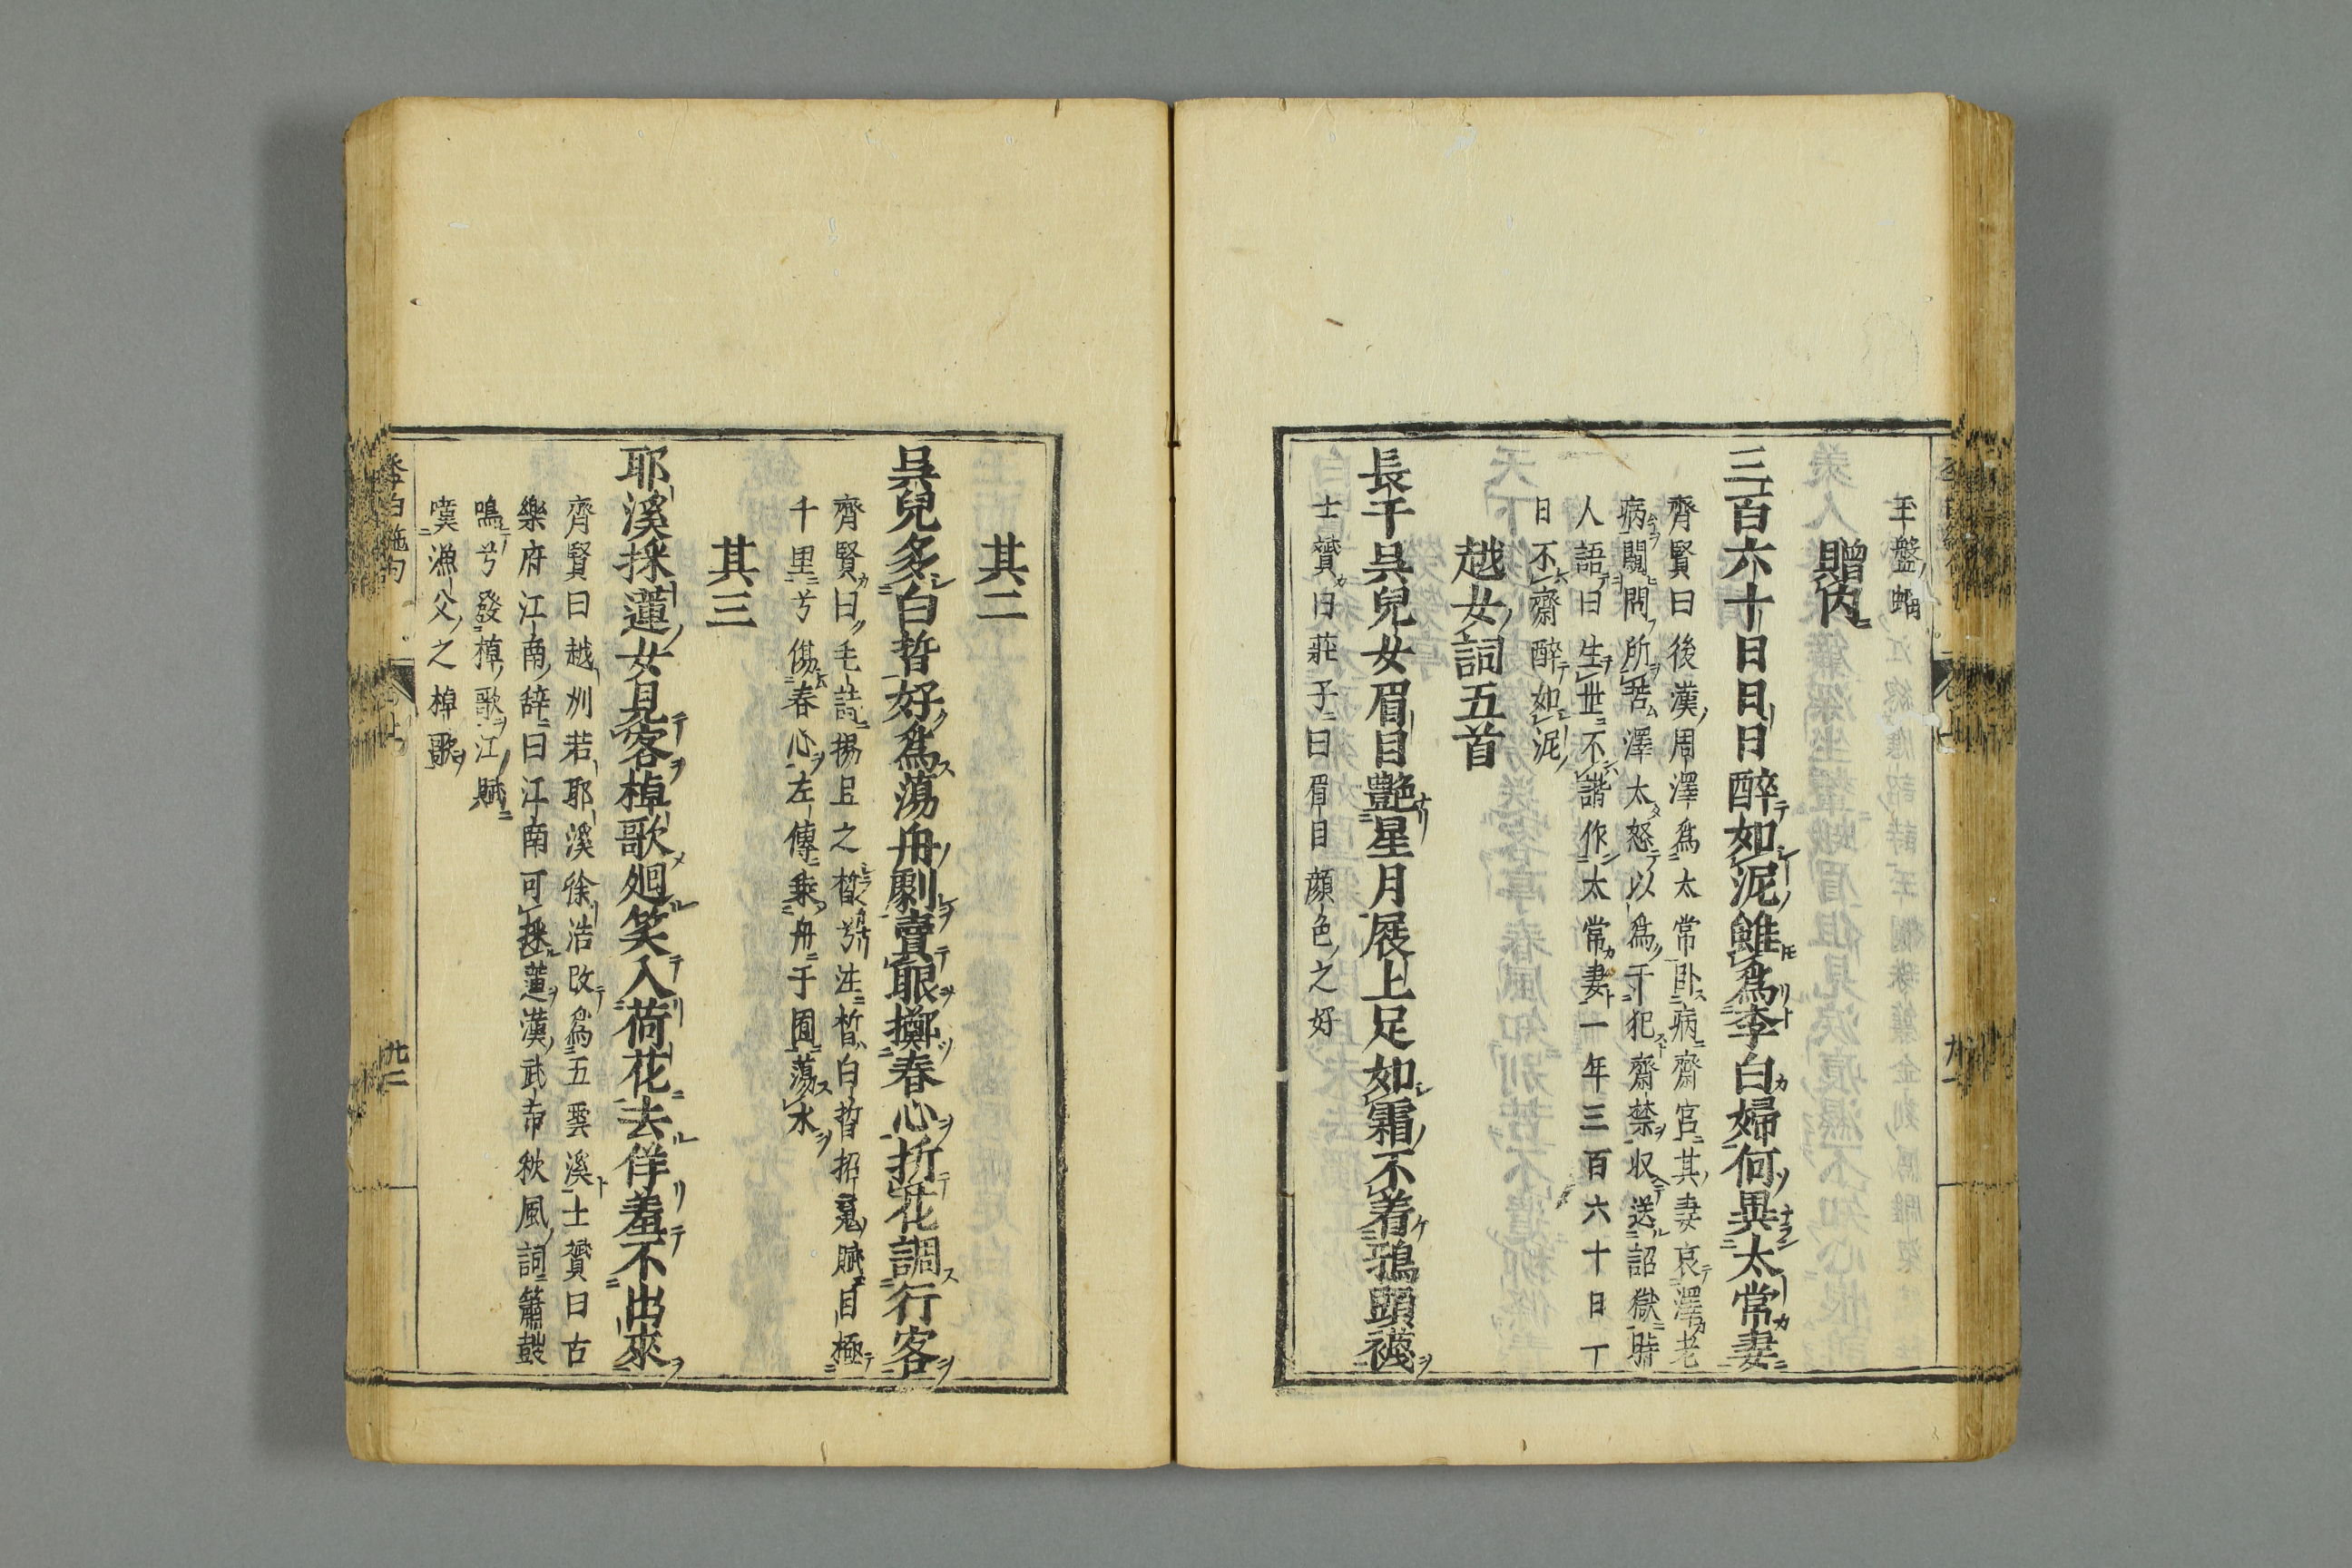 玉盤蛹
贈内
三百六十日日日醉如泥雖爲李白婦何異太常妻
齊賢曰後漢周澤爲太常卧病齋宮其妻哀澤老
病闚問所苦澤太怒以爲干犯齋禁収送詔獄時
人語曰生世不諧作太常妻一年三百六十日丁
日不齋醉如泥
越女詞五首
長干吳兒女眉目艷星月屐上足如霜不着鴉頭襪
士贇曰莊子曰眉目顔色之好
其二
吳兒多白皙好爲蕩舟劇賣眼擲春心折花調行客
齊賢曰毛詩揚且之皙兮注皙白皙招䰟賦目極
千里兮傷春心左傳乘舟于囿蕩水
其三
耶溪採蓮女見客棹歌廻笑入荷花去佯羞不出來
齊賢曰越州若耶溪徐浩改爲五雲溪士贇曰古
樂府江南辞曰江南可採蓮漢武帝秋風詞簫鼓
鳴兮發棹歌江賦
嘆漁父之棹歌
九二